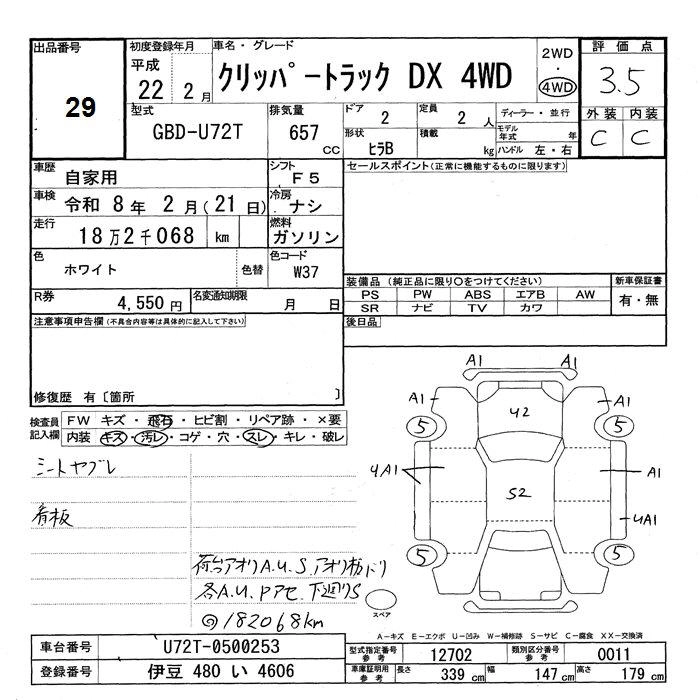 出品番号 初度登録年月 車名・グレード 2WD 評価点
29 平成 22 2月 クリッパートラック DX 4WD ・ 4WD 3.5
型式 排気量 ドア 定員 ディーラー・並行 外装 内装
GBD-U72T 657 CC 2 2人 モデル年式 年 C C
形状 ヒラB 積載 kg ハンドル 左・右
車歴 自家用 シフト F5 セールスポイント(正常に機能するものに限ります)
車検 令和 8年 2月(21日) 冷房 ナシ
走行 18万2千068 km 燃料 ガソリン
色 ホワイト 色替 色コード W37
装備品(純正品に限り○をつけてください) 新車保証書
R券 4,550円 名変通知期限 月 日 PS PW ABS エアB AW 有・無
SR ナビ TV カワ
注意事項申告欄(不具合内容等は具体的に記入して下さい) 後日品
修復歴 有〔箇所 〕
検査員記入欄 FW キズ・飛石・ヒビ割・リペア跡・×要
内装 キズ・汚レ・コゲ・穴・スレ・キレ・破レ
シートヤブレ
看板
荷台アオリA.U.S.アオリ板トリ
各A.U.Pアセ.下廻りS
@182068km
A1 A1
A1 A1
5 U2 5
UA1 S2 A1
UA1
5 5
スペア
A-キズ E-エクボ U-凹み W-補修跡 S-サビ C-腐食 XX-交換済
車台番号 U72T-0500253 型式指定番号参考 12702 類別区分番号参考 0011
登録番号 伊豆 480 い 4606 車庫証明用参考 長さ 339 cm 幅 147 cm 高さ 179 cm